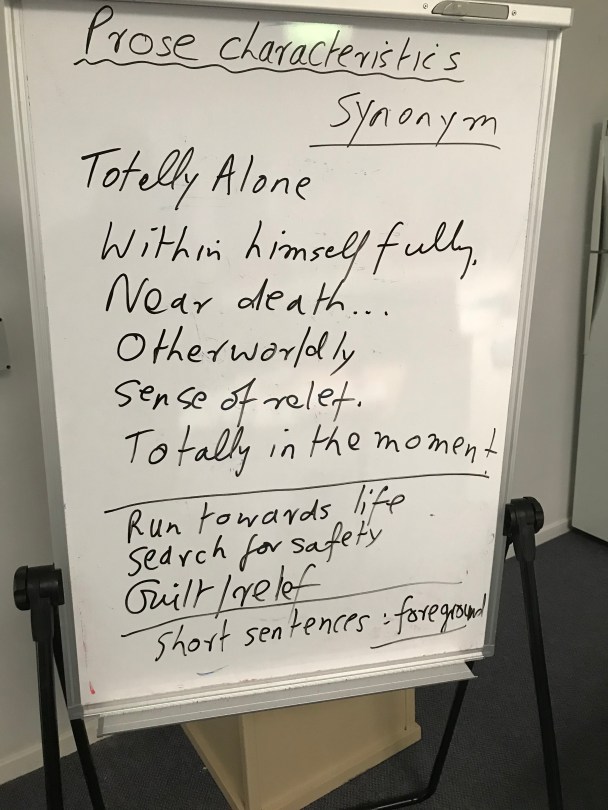 Prose characteristics
Synonym
Totelly Alone
Within himself fully.
Near death...
Otherworldly
Sense of relef.
Totally in the moment
Run towards life
Search for safety
Guilt/relef
Short sentences : foreground